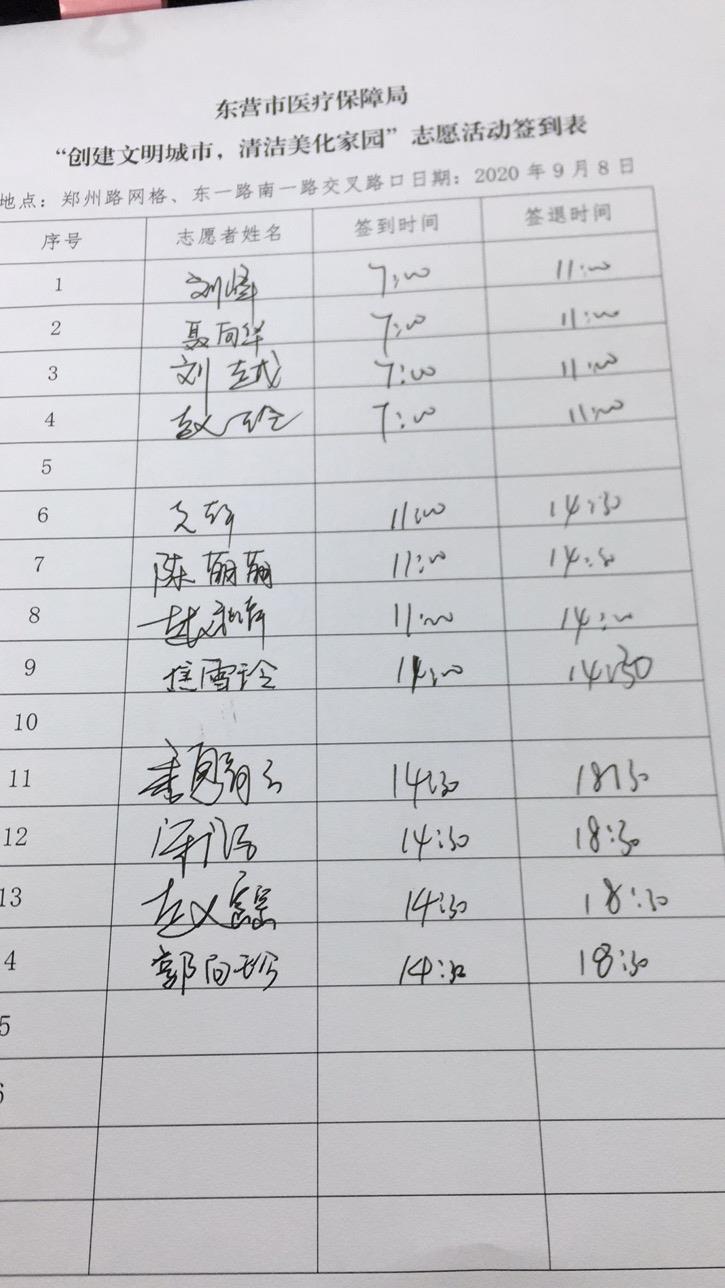 东营市医疗保障局
“创建文明城市，清洁美化家园”志愿活动签到表
地点：郑州路网格、东一路南一路交叉路口日期：2020年9月8日
序号 志愿者姓名 签到时间 签退时间
1 7:00 11:00
2 聂向华 7:00 11:00
3 刘 7:00 11:00
4 赵 7:00 11:00
5
6 11:00 14:30
7 陈丽丽 11:00 14:30
8 赵 11:00 14:00
9 焦雪玲 14:00 14:30
10
11 14:30 18:30
12 14:30 18:30
13 赵 14:30 18:30
4 郭向珍 14:30 18:30
5